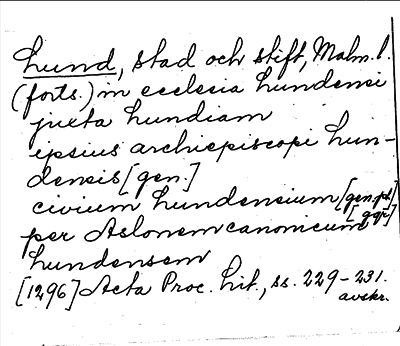 Lund, stad och stift, Malm. l.
(forts.) in ecclesia Lundensi
juxta Lundiam
ipsius archiepiscopi Lun-
densis [gen.]
civium Lundensium [gen.pl.]
[ggr]
per Aslonem canonicum
Lundensem
[1296] Acta Proc. Lit., ss. 229-231.
avskr.